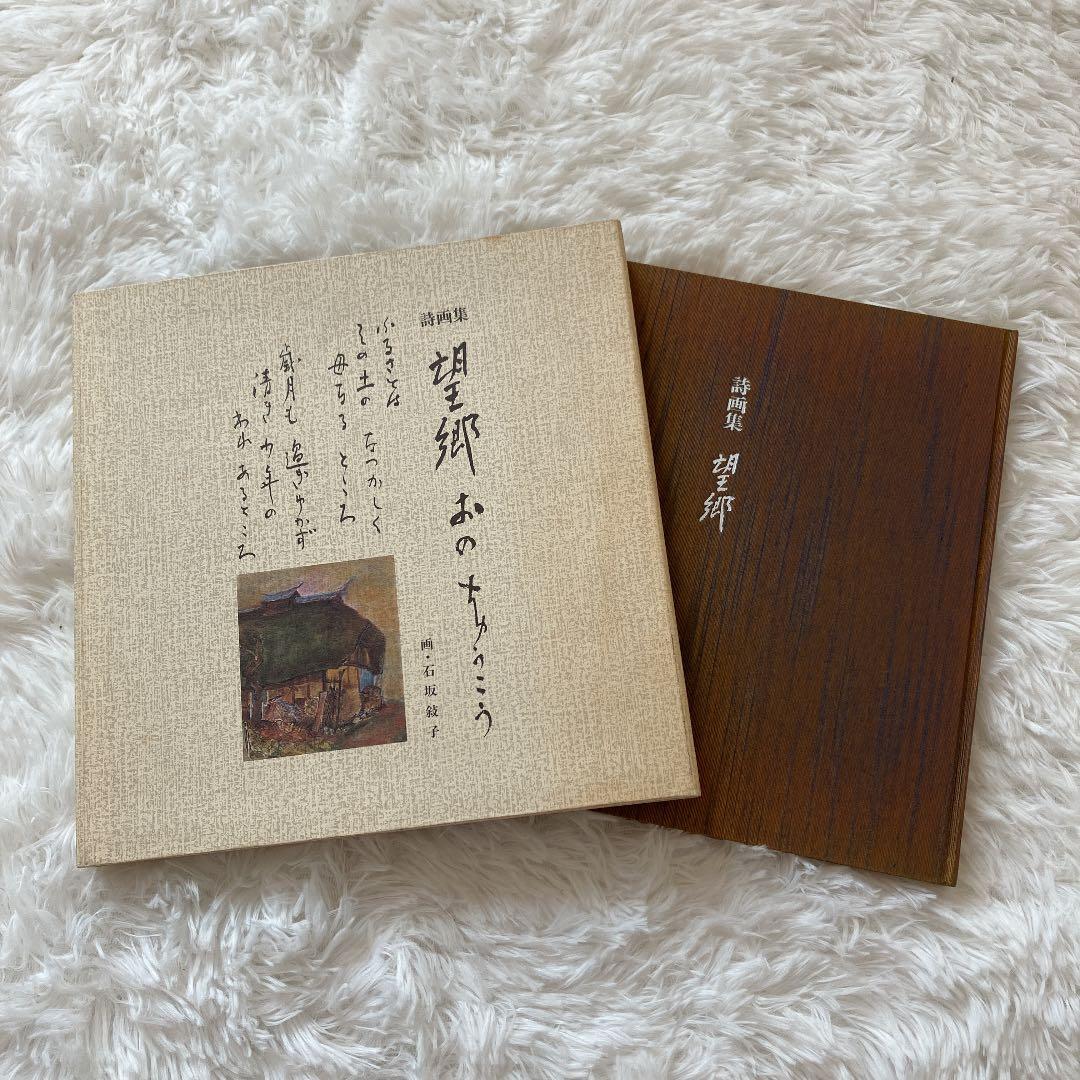 詩画集
望郷 おの ちゅうこう
ふるさとは なつかしく
その土の 母なる ところ
歳月も 過ぎゆかず
清き 少年の
われ あるところ
画・石坂敍子
詩画集 望郷